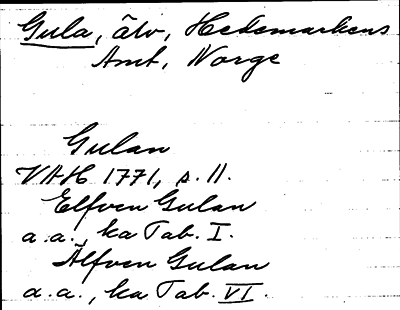 Gula, älv, Hedemarkens
Amt, Norge
Gulan
VAH 1771, s. 11.
Elfven Gulan
a.a., ka Tab. I.
Älfven Gulan
a.a., ka Tab. VI.